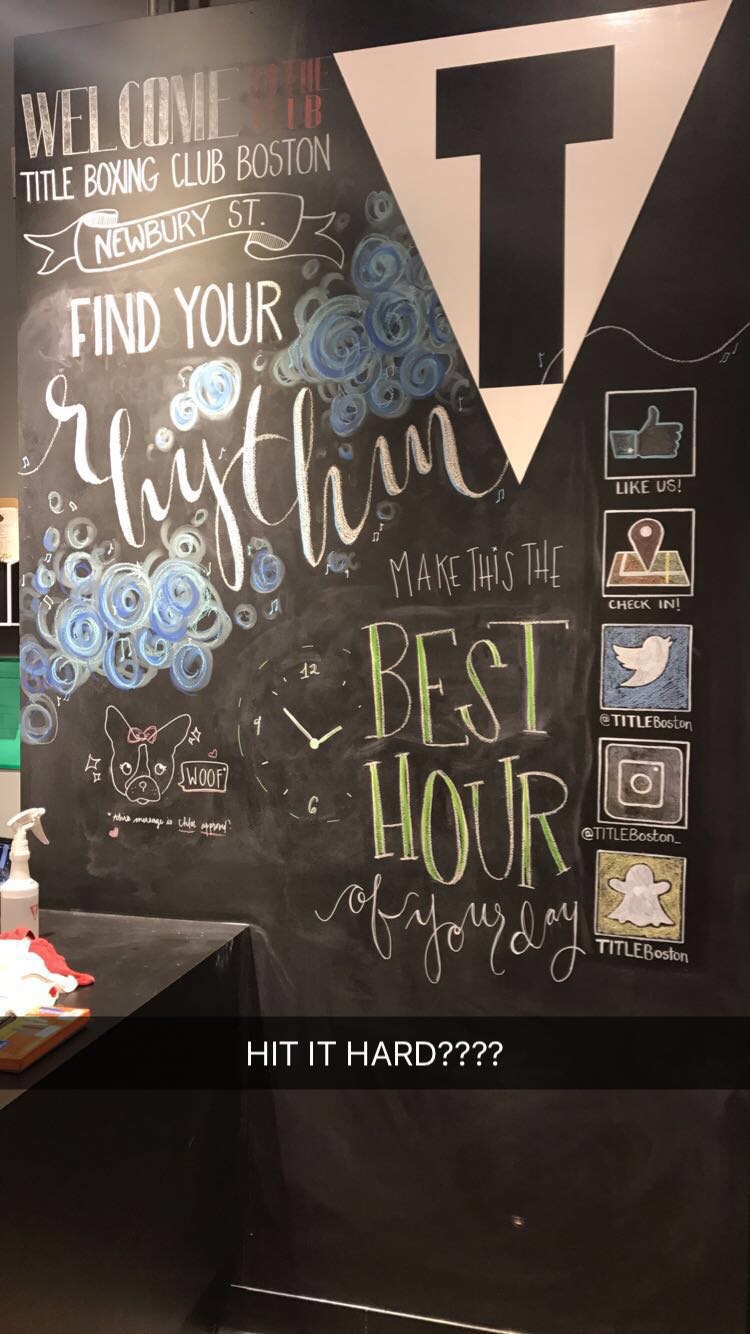 WELCOME TO THE CLUB
TITLE BOXING CLUB BOSTON
NEWBURY ST.
FIND YOUR
rhythm
T
MAKE THIS THE
BEST
HOUR
of your day
12
9
6
WOOF
"this message is Chloe approved"
LIKE US!
CHECK IN!
@TITLEBoston
@TITLEBoston_
TITLEBoston
HIT IT HARD????